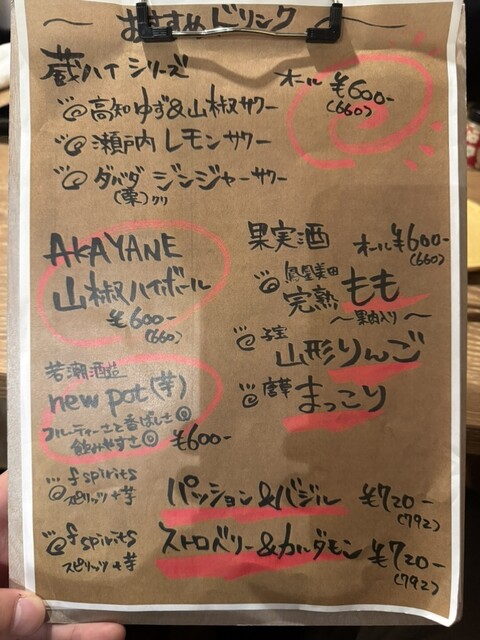 〜 おすすめドリンク 〜
蔵ハイシリーズ
オール ¥600-
(660)
高知ゆず&山椒サワー
瀬戸内レモンサワー
ダバダ ジンジャーサワー
(栗)クリ
AKAYANE
山椒ハイボール
¥600-
(660)
果実酒 オール¥600-
(660)
鳳凰美田
完熟もも
〜果肉入り〜
子宝
山形りんご
まっこり
若潮酒造
new pot (芋)
フルーティーさと香ばしさ◎
飲みやすさ◎ ¥600-
f spirits
スピリッツ+芋
パッション&バジル ¥720-
(792)
f spirits
スピリッツ+芋
ストロベリー&カルダモン ¥720-
(792)